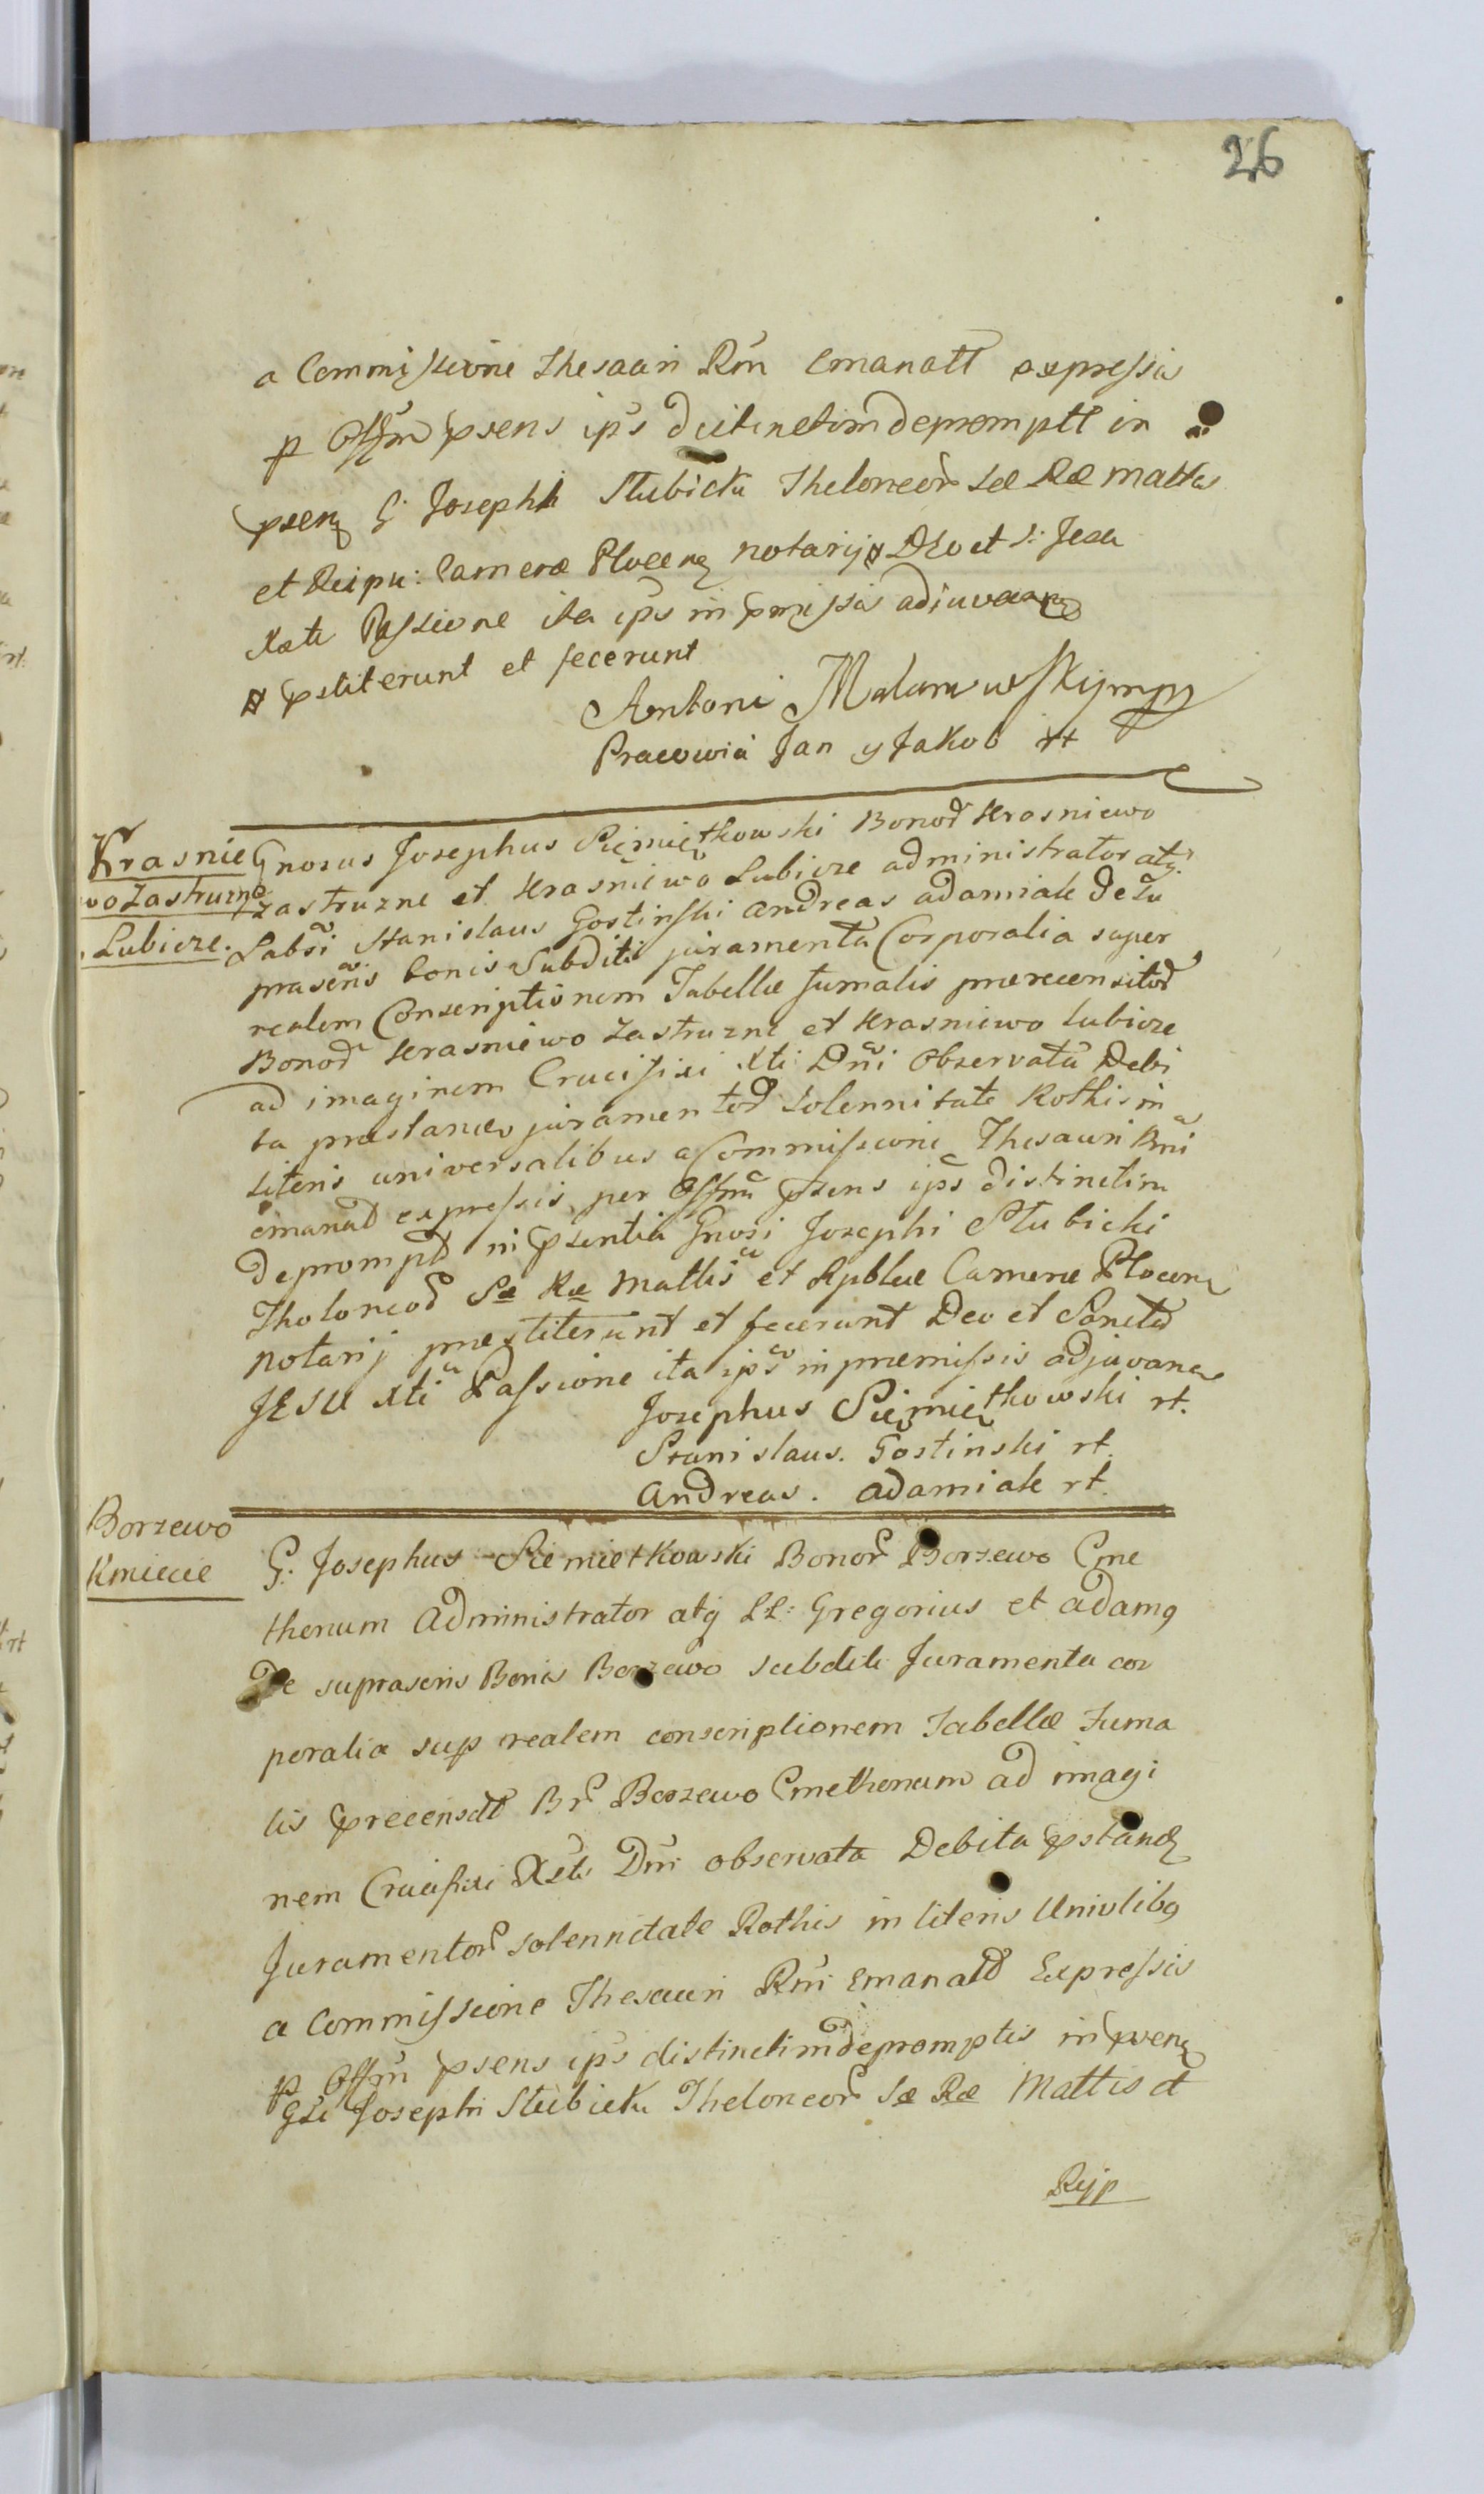 26
a Commissione Thesauri Rni Emanatt expressis
p Offm psens ips distinctim depromptt in
psen G Josephi Stubicki Theloneor Sæ Ræ Mattis
et Reipu: Cameræ Plocen notarij Deo et S: Jesu
Xsti Passione ita ips in pmissis adiuvan
pstiterunt et fecerunt
Antoni
Pracowia Jan y Jakob rt
Krasnie
wo Zastruzne
Lubicze.
Gnosus Josephus Siemiętkowski Bonor Krasniewo
zastruzne et Krasniewo Lubicze administrator atq
Labsi Stanislaus Gostinski Andreas adamiak de su
prascris bonis Subditi juramenta Corporalia super
realem Conscriptionem Tabellæ fumalis prærecensitor
Bonor Krasniewo Zastruzne et Krasniewo Lubicze
ad imaginem Crucifixi Xti Dni Observata Debi
ta præstandor juramentor Solennitate Rothis in
Literis universalibus a Commissione Thesauri Rni
emanat expressis per Offm psens ips distinctim
deprompt in psentia Gnosi Josephi Stubicki
Tholoneor Sæ Ræ Mattis et Rpblcæ Cameræ Plocen
notarij præstiterunt et fecerunt Deo et Sancta
JESU Xti Passione ita ips in præmissis adjuvan
Josephus Siemiętkowski rt.
Stanislaus. Gostinski rt.
Andreas. adamiak rt.
Borzewo
Kmiecie
G: Josephus Siemietkowski Bonor Borzewo Cme
thonum Administrator atq LL: Gregorius et adamq
De suprascris Bonis Borzewo subditi Juramenta cor
poralia sup realem conscriptionem Tabellæ Fuma
lis precensitt Br Borzewo Cmethonum ad imagi
nem Crucifixi Xsti Dni observata Debita pstand
Juramentor solennitate Rothis in literis Univlibq
a Commissione Thesauri Rni Emanatt Expressis
p Offm psens ips distinctim depromptis in psen
Gsi Josephi Stubicki Theloneor Sæ Ræ Mattis et
Rijp